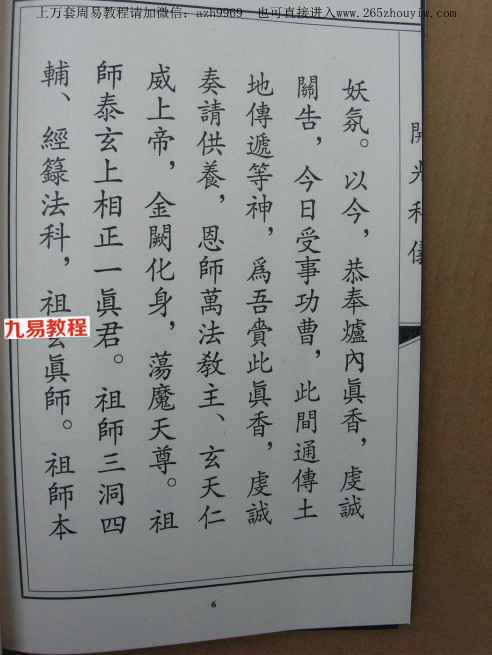 上万套周易教程请加微信：azh9969 也可直接进入www.265zhouyiw.com
開光科儀
妖氛。以今，恭奉爐內眞香，虔誠
關告，今日受事功曹，此間通傳土
地傳遞等神，爲吾賫此眞香，虔誠
奏請供養，恩師萬法教主、玄天仁
威上帝，金闕化身，蕩魔天尊。祖
師泰玄上相正一眞君。祖師三洞四
輔、經籙法科，祖玄眞師。祖師本
九易教程
6